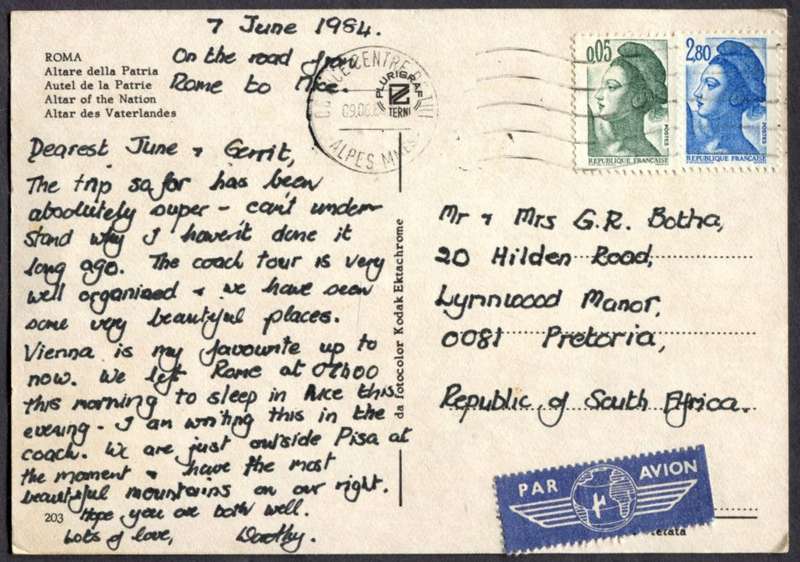 7 June 1984.
On the road from
Rome to Nice.
ROMA
Altare della Patria
Autel de la Patrie
Altar of the Nation
Altar des Vaterlandes
Dearest June + Gerrit,
The trip so far has been
absolutely super - can't under-
stand why I haven't done it
long ago. The coach tour is very
well organised + we have seen
some very beautiful places.
Vienna is my favourite up to
now. We left Rome at 07h00
this morning to sleep in Nice this
evening. I am writing this in the
coach. We are just outside Pisa at
the moment + have the most
beautiful mountains on our right.
Hope you are both well.
Lots of love, Dorothy.
203
da fotocolor Kodak Ektachrome
PLURIGRAF
TERNI
CENTRE
ALPES MMES
0,05
POSTES
REPUBLIQUE FRANÇAISE
2,80
POSTES
REPUBLIQUE FRANÇAISE
Mr + Mrs G.R. Botha,
20 Hilden Road,
Lynnwood Manor,
0081 Pretoria,
Republic of South Africa.
PAR AVION